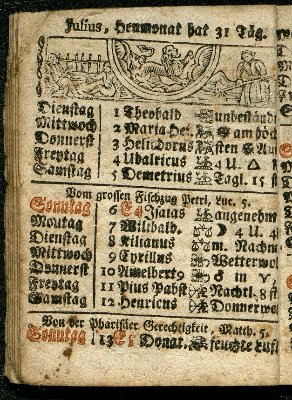 Julius, Heumonat hat 31 Täg.
Dienstag 1 Theobald unbeständi
Mittwoch 2 Maria Hei. am höc
Donnerst 3 Heliodorus sten
Freytag 4 Udalricus 4 U. △
Samstag 5 Demetrius Tagl. 15 st
Vom grossen Fischzug Petri, Luc. 5.
Sonntag 6 E5 Isaias angenehm
Montag 7 Wilibald. ☽ 4 U. 4
Dienstag 8 Kilianus m. Nachm
Mittwoch 9 Cyrillus Wetterwol
Donnerst 10 Amelbert9 ♂ in ♈,
Freytag 11 Pius Pabst Nachtl. 8 st
Samstag 12 Henricus Donnerwe
Von der Pharisäer Gerechtigkeit, Matth. 5.
Sonntag 13 E6 Donat. feuchte Luf